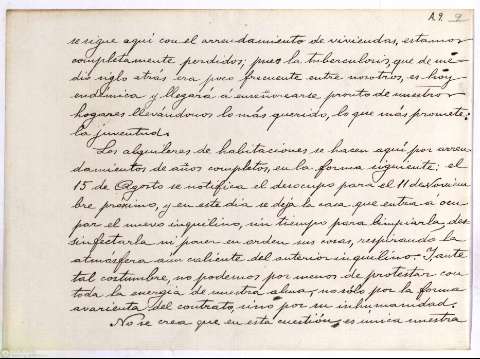 A.9. 9
se sigue aquí con el arrendamiento de viviendas, estamos
completamente perdidos; pues la tuberculosis, que de me-
dio siglo atrás era poco frecuente entre nosotros, es hoy
endémica y llegará á enseñorearse pronto de nuestros
hogares llevándonos lo más querido, lo que más promete:
la juventud.
Los alquileres de habitaciones se hacen aquí por arren-
damientos de años completos, en la forma siguiente: el
15 de Agosto se notifica el desocupo para el 11 de Noviem-
bre próximo, y en este dia se deja la casa que entra á ocu-
par el nuevo inquilino, sin tiempo para limpiarla, des-
infectarla ni poner en orden sus cosas, respirando la
atmósfera aun caliente del anterior inquilino. Y, ante
tal costumbre, no podemos por menos de protestar con
toda la energía de nuestra alma, no sólo por la forma
avarienta del contrato, sino por su inhumanidad.
No se crea que en esta cuestión, es única nuestra